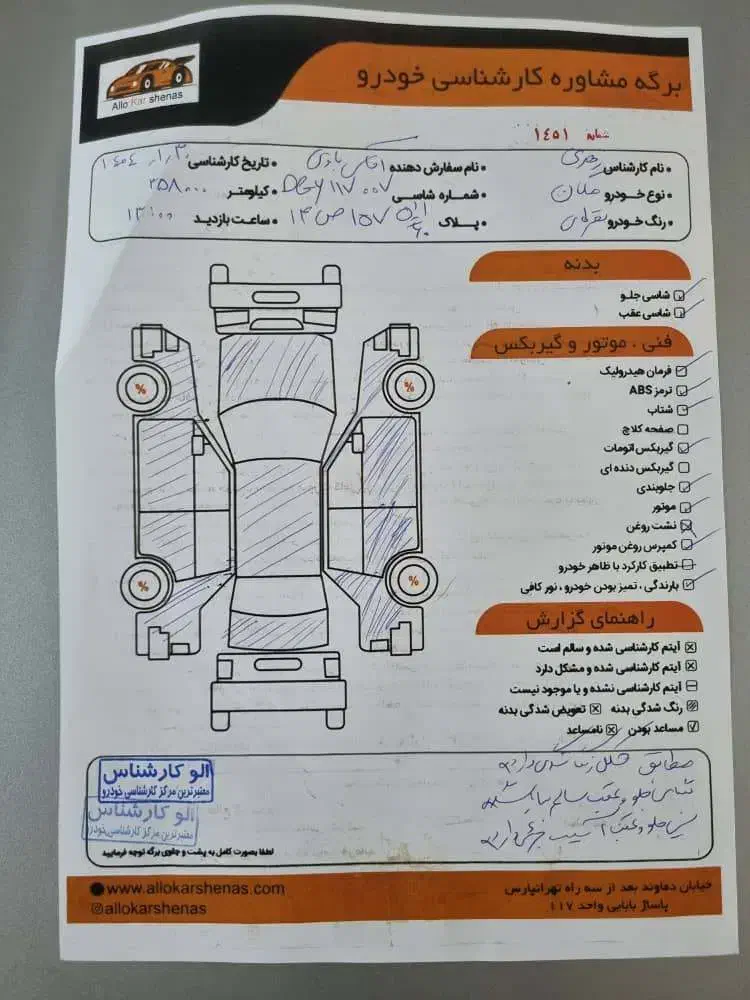 Allo Kar shenas
برگه مشاوره کارشناسی خودرو
شماره ۱۴۵۱
• نام کارشناس • نام سفارش دهنده • تاریخ کارشناسی
• نوع خودرو مگان • شماره شاسی • کیلومتر ۳۵۸۰۰۰
• رنگ خودرو نقره‌ای • پلاک • ساعت بازدید ۱۳:۰۰
بدنه
شاسی جلو
شاسی عقب
فنی ، موتور و گیربکس
فرمان هیدرولیک
ترمز ABS
شتاب
صفحه کلاچ
گیربکس اتومات
گیربکس دنده ای
جلوبندی
موتور
نشت روغن
کمپرس روغن موتور
تطبیق کارکرد با ظاهر خودرو
بارندگی ، تمیز بودن خودرو ، نور کافی
%
%
%
%
راهنمای گزارش
آیتم کارشناسی شده و سالم است
آیتم کارشناسی شده و مشکل دارد
آیتم کارشناسی نشده و یا موجود نیست
رنگ شدگی بدنه تعویض شدگی بدنه
مساعد بودن نامساعد
مطابق شکل رنگ شدگی دارد
الو کارشناس
معتبرترین مرکز کارشناسی خودرو
الو کارشناس
معتبرترین مرکز کارشناسی خودرو
لطفا بصورت کامل به پشت و جلوی برگه توجه فرمایید
خیابان دماوند بعد از سه راه تهرانپارس
پاساژ بابایی واحد ۱۱۷
www.allokarshenas.com
allokarshenas